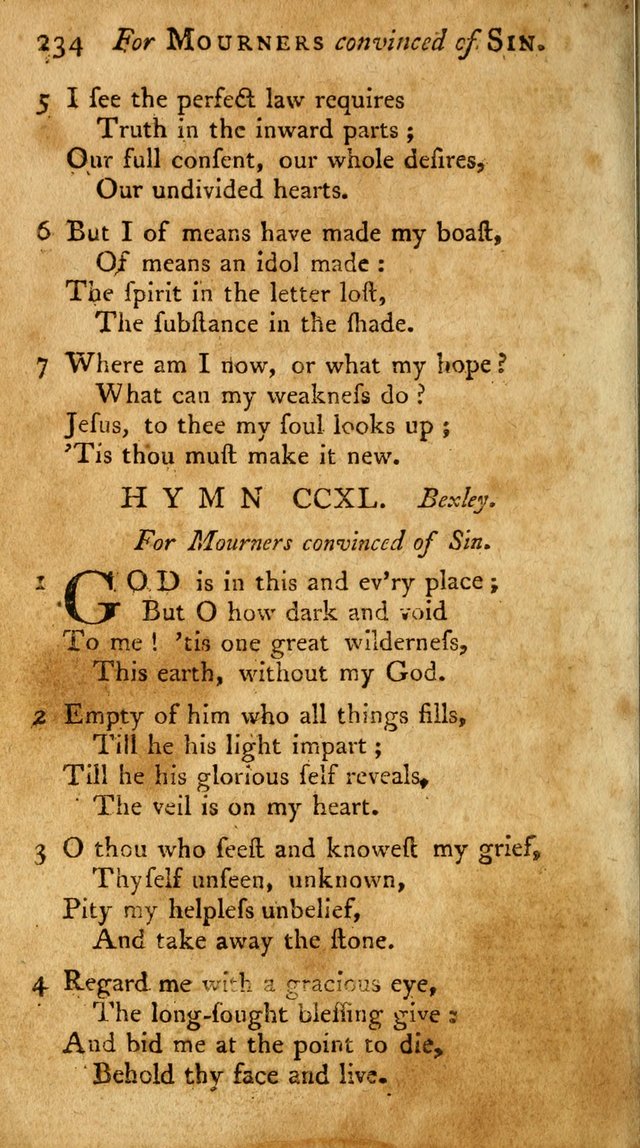 234 For MOURNERS convinced of SIN.
5 I ſee the perfect law requires
Truth in the inward parts ;
Our full conſent, our whole deſires,
Our undivided hearts.
6 But I of means have made my boaſt,
Of means an idol made :
The ſpirit in the letter loſt,
The ſubſtance in the ſhade.
7 Where am I now, or what my hope ?
What can my weakneſs do ?
Jeſus, to thee my ſoul looks up ;
'Tis thou muſt make it new.
HYMN CCXL. Bexley.
For Mourners convinced of Sin.
1 GOD is in this and ev'ry place ;
But O how dark and void
To me ! 'tis one great wilderneſs,
This earth, without my God.
2 Empty of him who all things fills,
Till he his light impart ;
Till he his glorious ſelf reveals,
The veil is on my heart.
3 O thou who ſeeſt and knoweſt my grief,
Thyſelf unſeen, unknown,
Pity my helpleſs unbelief,
And take away the ſtone.
4 Regard me with a gracious eye,
The long-ſought bleſſing give :
And bid me at the point to die,
Behold thy face and live.